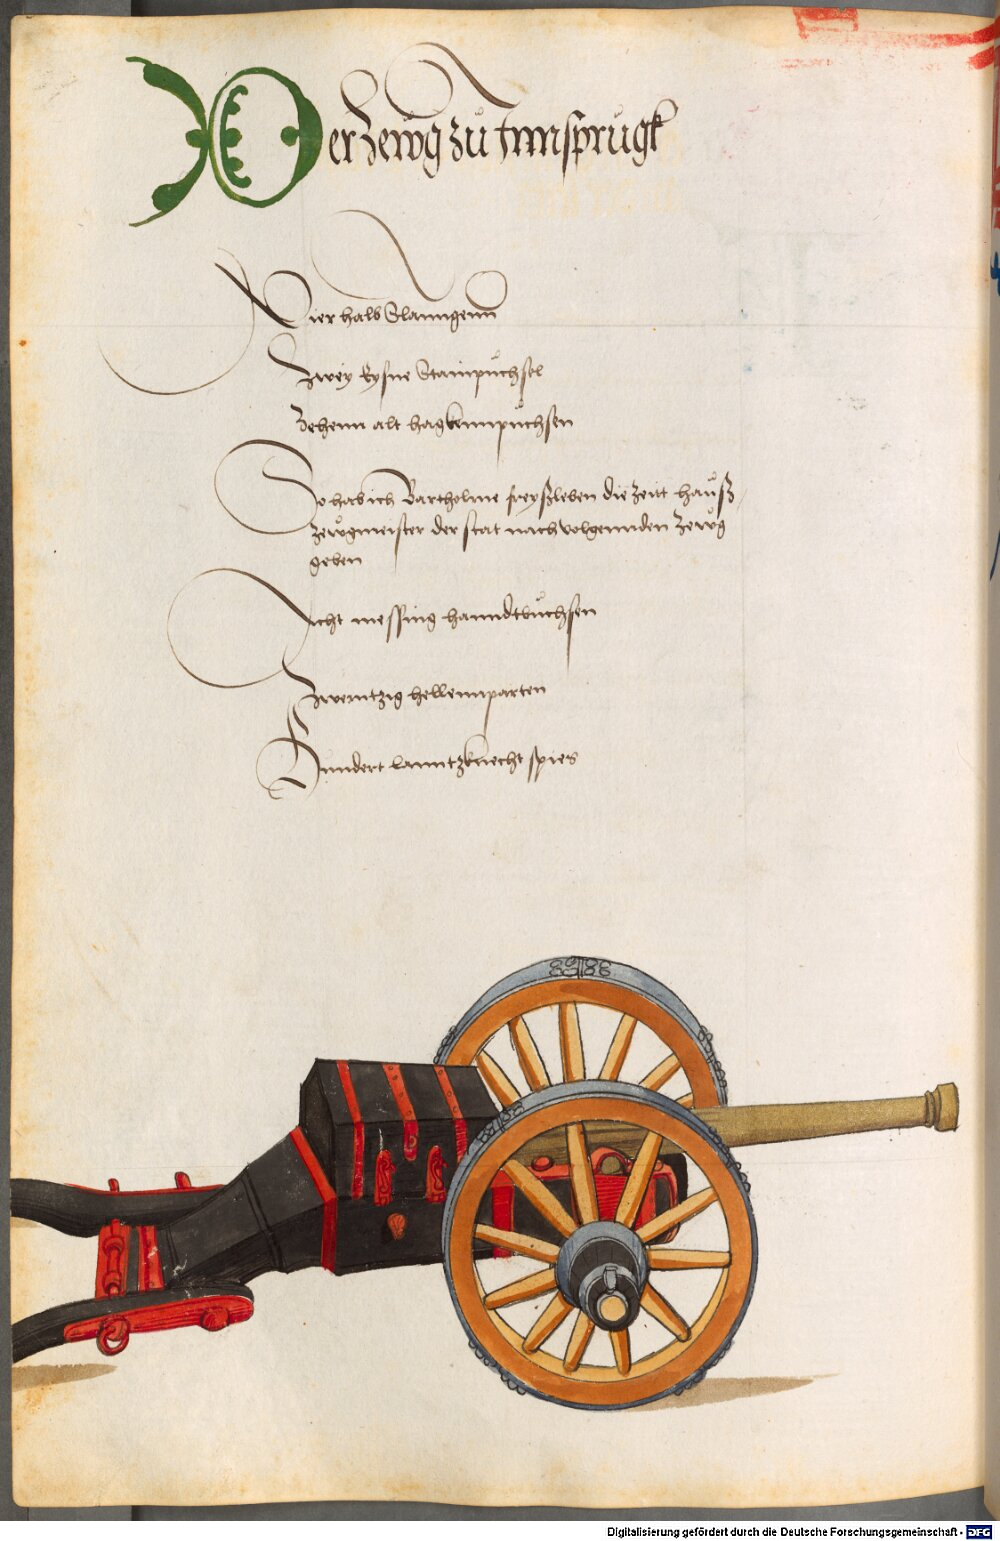 Der Zewg zů Innsprugk
Vier halb Slanngenn
Zwey Eysne Stainpůchsel
Zehenn alt hagkennpůchsen
So hab ich Bartholme freyßleben die Zeitt hauß
zewgmeister der stat nachuolgennden Zewg
geben
Acht messing hanndtbůchsen
Zwenntzig hellennparten
Hundert lanntzknecht spies
Digitalisierung gefördert durch die Deutsche Forschungsgemeinschaft - DFG